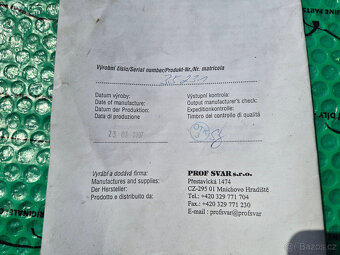 Výrobní číslo/Serial number/Produkt-Nr./Nr. matricola
Datum výroby:
Date of manufacture:
Datum der Produktion:
Data di produzione
Výstupní kontrola:
Output manufacturer's check:
Expeditionskontrolle:
Timbro del controllo di qualità
Vyrábí a dodává firma:
Manufactures and supplies:
Der Hersteller:
Prodotto e distribuito da:
PROF SVAR s.r.o.
Přestavlcká 1474
CZ-295 01 Mnichovo Hradiště
Tel.: +420 329 771 704
Fax.: +420 329 771 230
E-mail : profsvar@profsvar